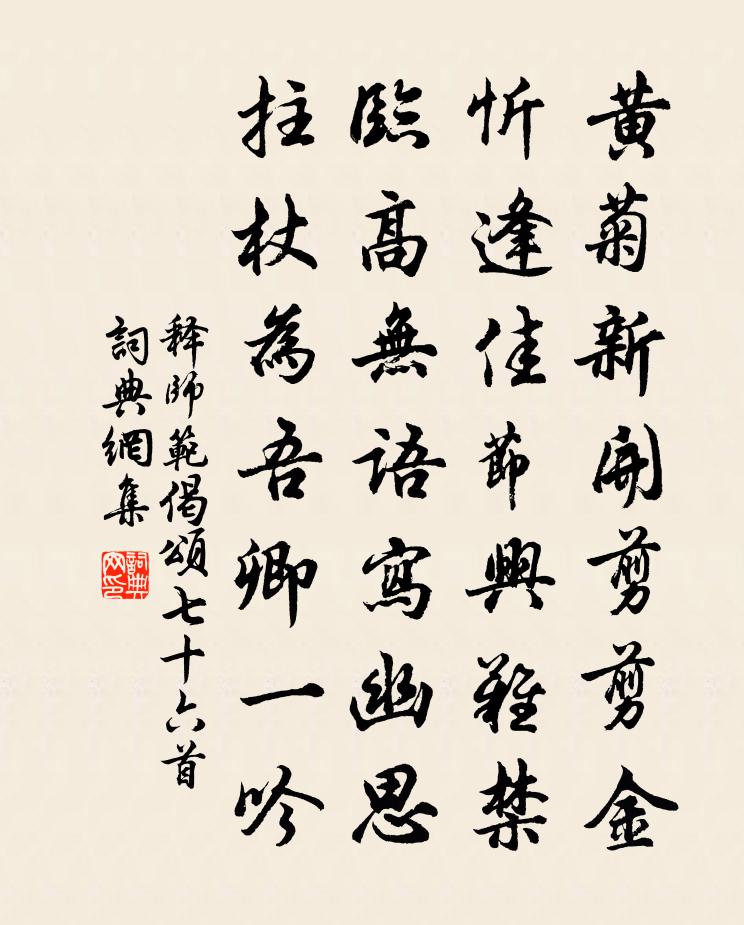 黄菊新開剪剪金
忻逢佳節興難禁
臨高無語寫幽思
拄杖為吾卿一吟
释師範偈頌七十六首
詞典網集
詞典網印